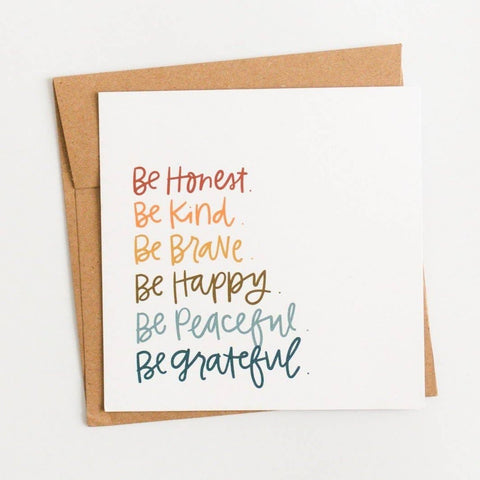 Be Honest.
Be Kind.
Be Brave.
Be Happy.
Be Peaceful.
Be grateful.